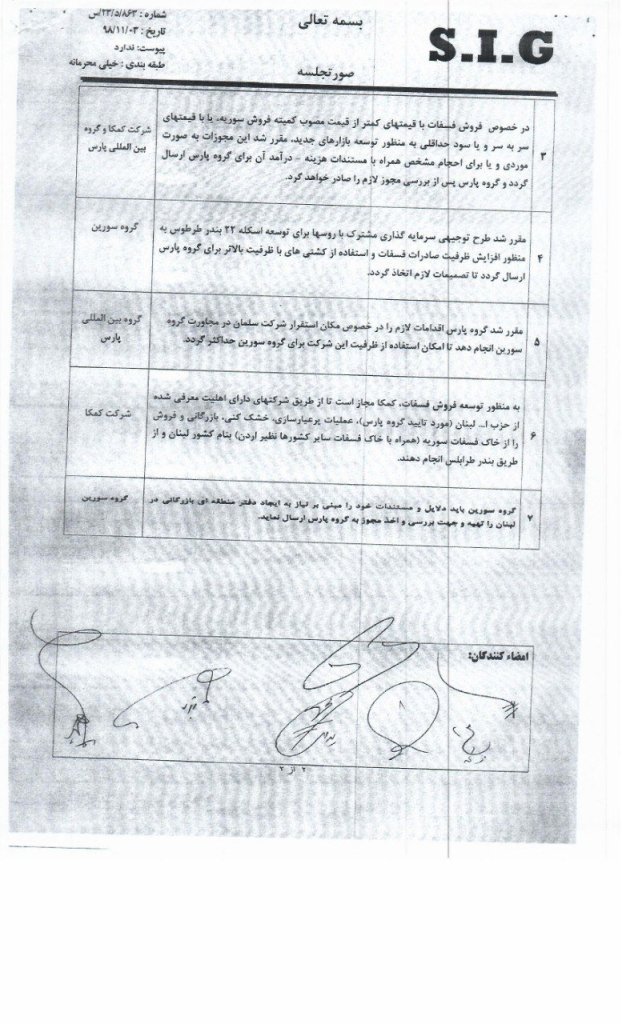 بسمه تعالی
S.I.G
شماره : ۸۶۳/د/۲۳/س
تاریخ : ۹۸/۱۱/۰۳
پیوست: ندارد
طبقه بندی : خیلی محرمانه
صورتجلسه
۳
در خصوص فروش فسفات با قیمتهای کمتر از قیمت مصوب کمیته فروش سوریه، یا با قیمتهای
سر به سر و یا سود حداقلی به منظور توسعه بازارهای جدید، مقرر شد این مجوزات به صورت
موردی و یا برای احجام مشخص همراه با مستندات هزینه – درآمد آن برای گروه پارس ارسال
گردد و گروه پارس پس از بررسی مجوز لازم را صادر خواهد کرد.
شرکت کمکا و گروه
بین المللی پارس
۴
مقرر شد طرح توجیهی سرمایه گذاری مشترک با روسها برای توسعه اسکله ۲۲ بندر طرطوس به
منظور افزایش ظرفیت صادرات فسفات و استفاده از کشتی های با ظرفیت بالاتر برای گروه پارس
ارسال گردد تا تصمیمات لازم اتخاذ گردد.
گروه سورین
۵
مقرر شد گروه پارس اقدامات لازم را در خصوص مکان استقرار شرکت سلمان در مجاورت گروه
سورین انجام دهد تا امکان استفاده از ظرفیت این شرکت برای گروه سورین حداکثر گردد.
گروه بین المللی
پارس
۶
به منظور توسعه فروش فسفات، کمکا مجاز است تا از طریق شرکتهای دارای اهلیت معرفی شده
از حزب ا... لبنان (مورد تایید گروه پارس)، عملیات پرعیارسازی، خشک کنی، بازرگانی و فروش
را از خاک فسفات سوریه (همراه با خاک فسفات سایر کشورها نظیر اردن) بنام کشور لبنان و از
طریق بندر طرابلس انجام دهند.
شرکت کمکا
۷
گروه سورین باید دلایل و مستندات خود را مبنی بر نیاز به ایجاد دفتر منطقه ای بازرگانی در
لبنان را تهیه و جهت بررسی و اخذ مجوز به گروه پارس ارسال نماید.
گروه سورین
امضاء کنندگان:
۲ از ۲